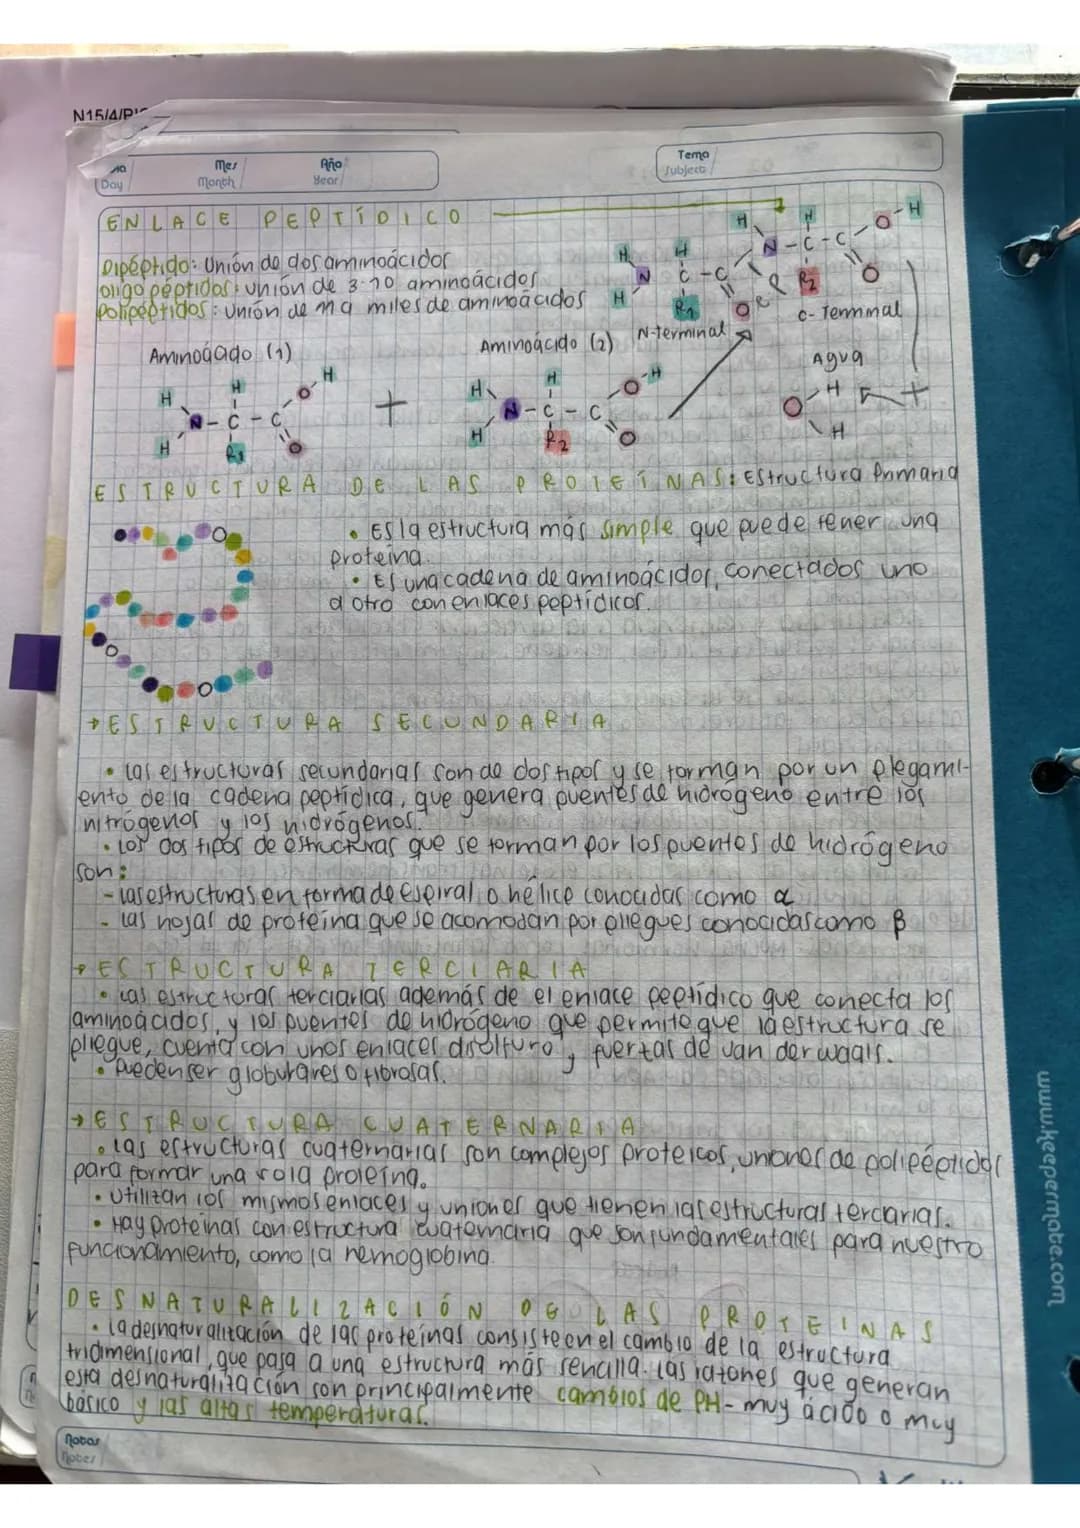 N15/4/
Day
Mes
Month
Año
Year
Tema
Subject
ENLACE PEPTÍDICO
Dipéptido: Unión de dos aminoácidos
oligopéptidos: unión de 3-10 aminoácidos
Polipéptidos: unión de miles de aminoácidos
H H N H C - C R1 O
H N - C - C H R2 O O - H
N-terminal
C-Terminal
Aminoácido (1)
Aminoácido (2)
Agua
H H N - C - C H R1 O O - H
+
H H N - C - C H R2 O O - H
O - H H
+
ESTRUCTURA DE LAS PROTEÍNAS: Estructura Primaria
• Es la estructura más simple que puede tener una
proteína.
• Es una cadena de aminoácidos, conectados uno
a otro con enlaces peptídicos.
→ESTRUCTURA SECUNDARIA
• Las estructuras secundarias son de dos tipos y se forman por un plegami-
ento de la cadena peptídica, que genera puentes de hidrógeno entre los
nitrógenos y los hidrógenos.
• Los dos tipos de estructuras que se forman por los puentes de hidrógeno
son:
- Las estructuras en forma de espiral o hélice conocidas como α
- Las hojas de proteína que se acomodan por pliegues conocidas como β
→ESTRUCTURA TERCIARIA
• Las estructuras terciarias además de el enlace peptídico que conecta los
aminoácidos, y los puentes de hidrógeno que permite que la estructura se
pliegue, cuenta con unos enlaces disulfuro, y fuerzas de van der waals.
• Pueden ser globulares o fibrosas.
→ESTRUCTURA CUATERNARIA
• Las estructuras cuaternarias son complejos proteicos, uniones de polipéptidos
para formar una sola proteína.
• Utilizan los mismos enlaces y uniones que tienen las estructuras tercarias.
• Hay proteínas con estructura cuaternaria que son fundamentales para nuestro
funcionamiento, como la hemoglobina.
DESNATURALIZACIÓN DE LAS PROTEINAS
• La desnaturalización de las proteínas consiste en el cambio de la estructura
tridimensional, que pasa a una estructura más sencilla. Las razones que generan
esta desnaturalización son principalmente cambios de PH- muy ácido o muy
básico y las altas temperaturas.
Notas
Notes
www.keepermate.com